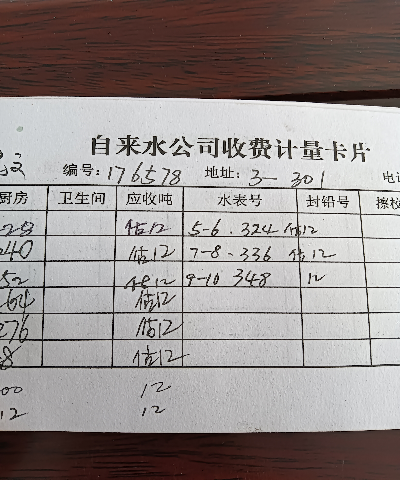 自来水公司收费计量卡片
编号:176578 地址:3-301 电
厨房 卫生间 应收吨 水表号 封铅号 擦校
228 估12 5-6.324 估12
240 估12 7-8-336 估12
52 估12 9-10 348 12
264 估12
276 估12
8 估12
00 12
12 12